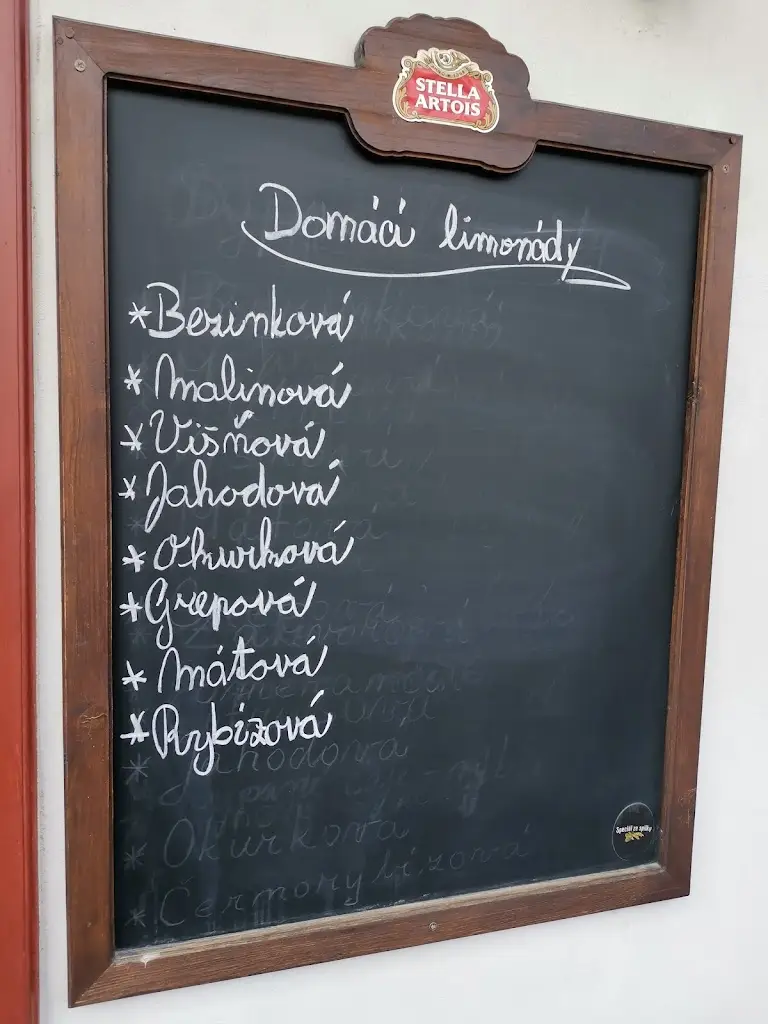 STELLA
ARTOIS
Domácí limonády
*Bezinková
*Malinová
*Višňová
*Jahodová
*Okurková
*Grepová
*Mátová
*Rybízová
*Jahodová
*Okurková
*Černorybízová
Speciál ze spilky